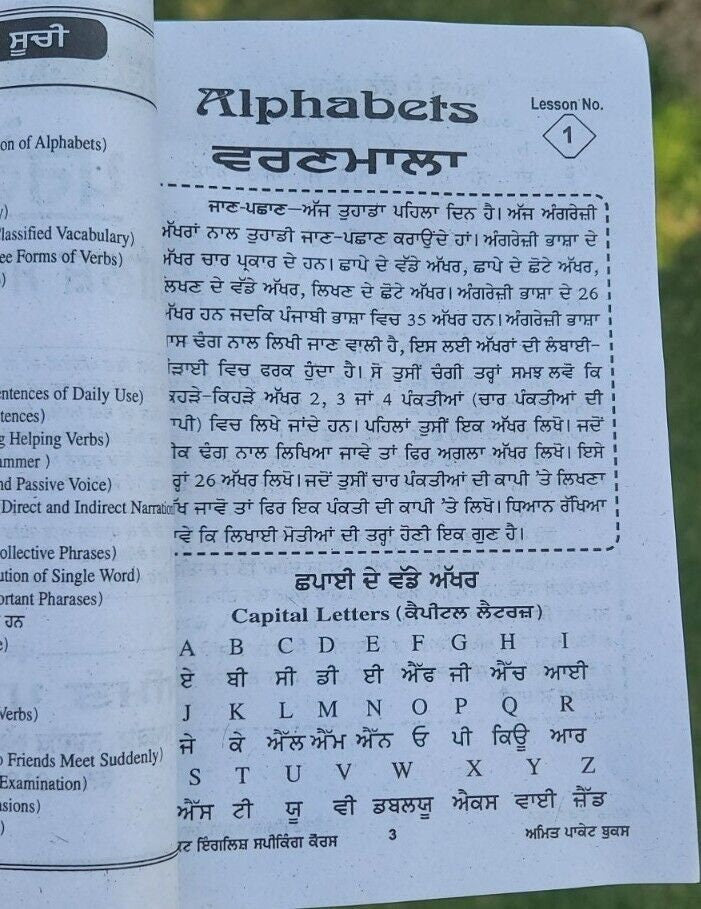 ਸੂਚੀ
on of Alphabets)
lassified Vacabulary)
ee Forms of Verbs)
entences of Daily Use)
tences)
g Helping Verbs)
ammer )
nd Passive Voice)
Direct and Indirect Narration
ollective Phrases)
ution of Single Word)
ortant Pharases)
ਹਨ
Verbs)
o Friends Meet Suddenly)
Examination)
sions)
Alphabets
Lesson No.
1
ਵਰਣਮਾਲਾ
ਜਾਣ-ਪਛਾਣ—ਅੱਜ ਤੁਹਾਡਾ ਪਹਿਲਾ ਦਿਨ ਹੈ। ਅੱਜ ਅੰਗਰੇਜ਼ੀ
ਅੱਖਰਾਂ ਨਾਲ ਤੁਹਾਡੀ ਜਾਣ-ਪਛਾਣ ਕਰਾਉਂਦੇ ਹਾਂ। ਅੰਗਰੇਜ਼ੀ ਭਾਸ਼ਾ ਦੇ
ਅੱਖਰ ਚਾਰ ਪ੍ਰਕਾਰ ਦੇ ਹਨ। ਛਾਪੇ ਦੇ ਵੱਡੇ ਅੱਖਰ, ਛਾਪੇ ਦੇ ਛੋਟੇ ਅੱਖਰ,
ਲਿਖਣ ਦੇ ਵੱਡੇ ਅੱਖਰ, ਲਿਖਣ ਦੇ ਛੋਟੇ ਅੱਖਰ। ਅੰਗਰੇਜ਼ੀ ਭਾਸ਼ਾ ਦੇ 26
ਅੱਖਰ ਹਨ ਜਦਕਿ ਪੰਜਾਬੀ ਭਾਸ਼ਾ ਵਿਚ 35 ਅੱਖਰ ਹਨ। ਅੰਗਰੇਜ਼ੀ ਭਾਸ਼ਾ
ਾਸ ਢੰਗ ਨਾਲ ਲਿਖੀ ਜਾਣ ਵਾਲੀ ਹੈ, ਇਸ ਲਈ ਅੱਖਰਾਂ ਦੀ ਲੰਬਾਈ-
ੌੜਾਈ ਵਿਚ ਫਰਕ ਹੁੰਦਾ ਹੈ। ਸੋ ਤੁਸੀਂ ਚੰਗੀ ਤਰ੍ਹਾਂ ਸਮਝ ਲਵੋ ਕਿ
ਕਿਹੜੇ-ਕਿਹੜੇ ਅੱਖਰ 2, 3 ਜਾਂ 4 ਪੰਕਤੀਆਂ (ਚਾਰ ਪੰਕਤੀਆਂ ਦੀ
ਾਪੀ) ਵਿਚ ਲਿਖੇ ਜਾਂਦੇ ਹਨ। ਪਹਿਲਾਂ ਤੁਸੀਂ ਇਕ ਅੱਖਰ ਲਿਖੋ। ਜਦੋਂ
ੀਕ ਢੰਗ ਨਾਲ ਲਿਖਿਆ ਜਾਵੇ ਤਾਂ ਫਿਰ ਅਗਲਾ ਅੱਖਰ ਲਿਖੋ। ਇਸੇ
ਰ੍ਹਾਂ 26 ਅੱਖਰ ਲਿਖੋ। ਜਦੋਂ ਤੁਸੀਂ ਚਾਰ ਪੰਕਤੀਆਂ ਦੀ ਕਾਪੀ 'ਤੇ ਲਿਖਣਾ
ਖ ਜਾਵੋ ਤਾਂ ਫਿਰ ਇਕ ਪੰਕਤੀ ਦੀ ਕਾਪੀ 'ਤੇ ਲਿਖੋ। ਧਿਆਨ ਰੱਖਿਆ
ਾਵੇ ਕਿ ਲਿਖਾਈ ਮੋਤੀਆਂ ਦੀ ਤਰ੍ਹਾਂ ਹੋਣੀ ਇਕ ਗੁਣ ਹੈ।
ਛਪਾਈ ਦੇ ਵੱਡੇ ਅੱਖਰ
Capital Letters (ਕੈਪੀਟਲ ਲੈਟਰਜ਼)
A B C D E F G H I
ਏ ਬੀ ਸੀ ਡੀ ਈ ਐੱਫ ਜੀ ਐੱਚ ਆਈ
J K L M N O P Q R
ਜੇ ਕੇ ਐੱਲ ਐੱਮ ਐੱਨ ਓ ਪੀ ਕਿਊ ਆਰ
S T U V W X Y Z
ਐੱਸ ਟੀ ਯੂ ਵੀ ਡਬਲਯੂ ਐਕਸ ਵਾਈ ਜ਼ੈੱਡ
ਇੰਗਲਿਸ਼ ਸਪੀਕਿੰਗ ਕੌਰਸ 3 ਅਮਿਤ ਪਾਕੇਟ ਬੁਕਸ